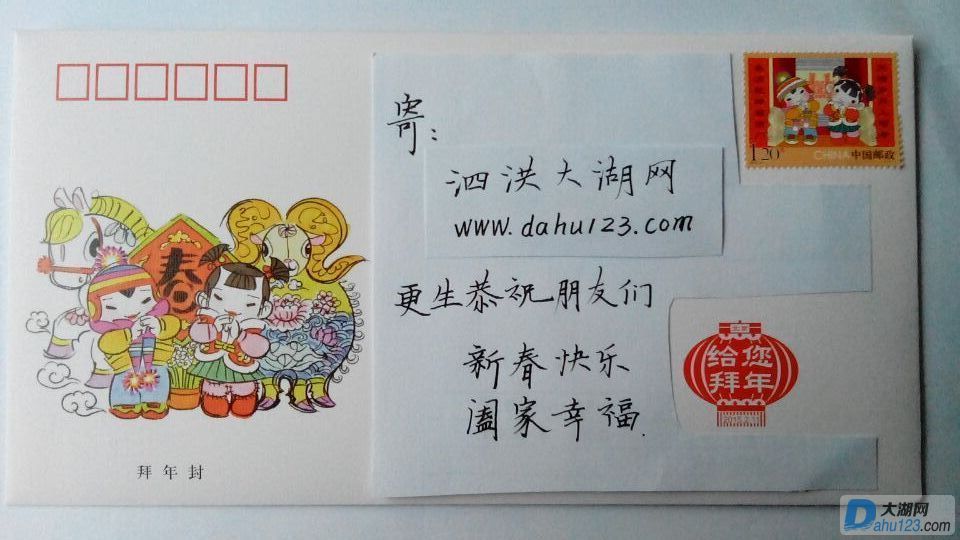 寄：
泗洪大湖网
www.dahu123.com
更生恭祝朋友们
新春快乐
阖家幸福.
春
拜年封
1.20
CHINA 中国邮政
给您
拜年
大湖网
Dahu123.com